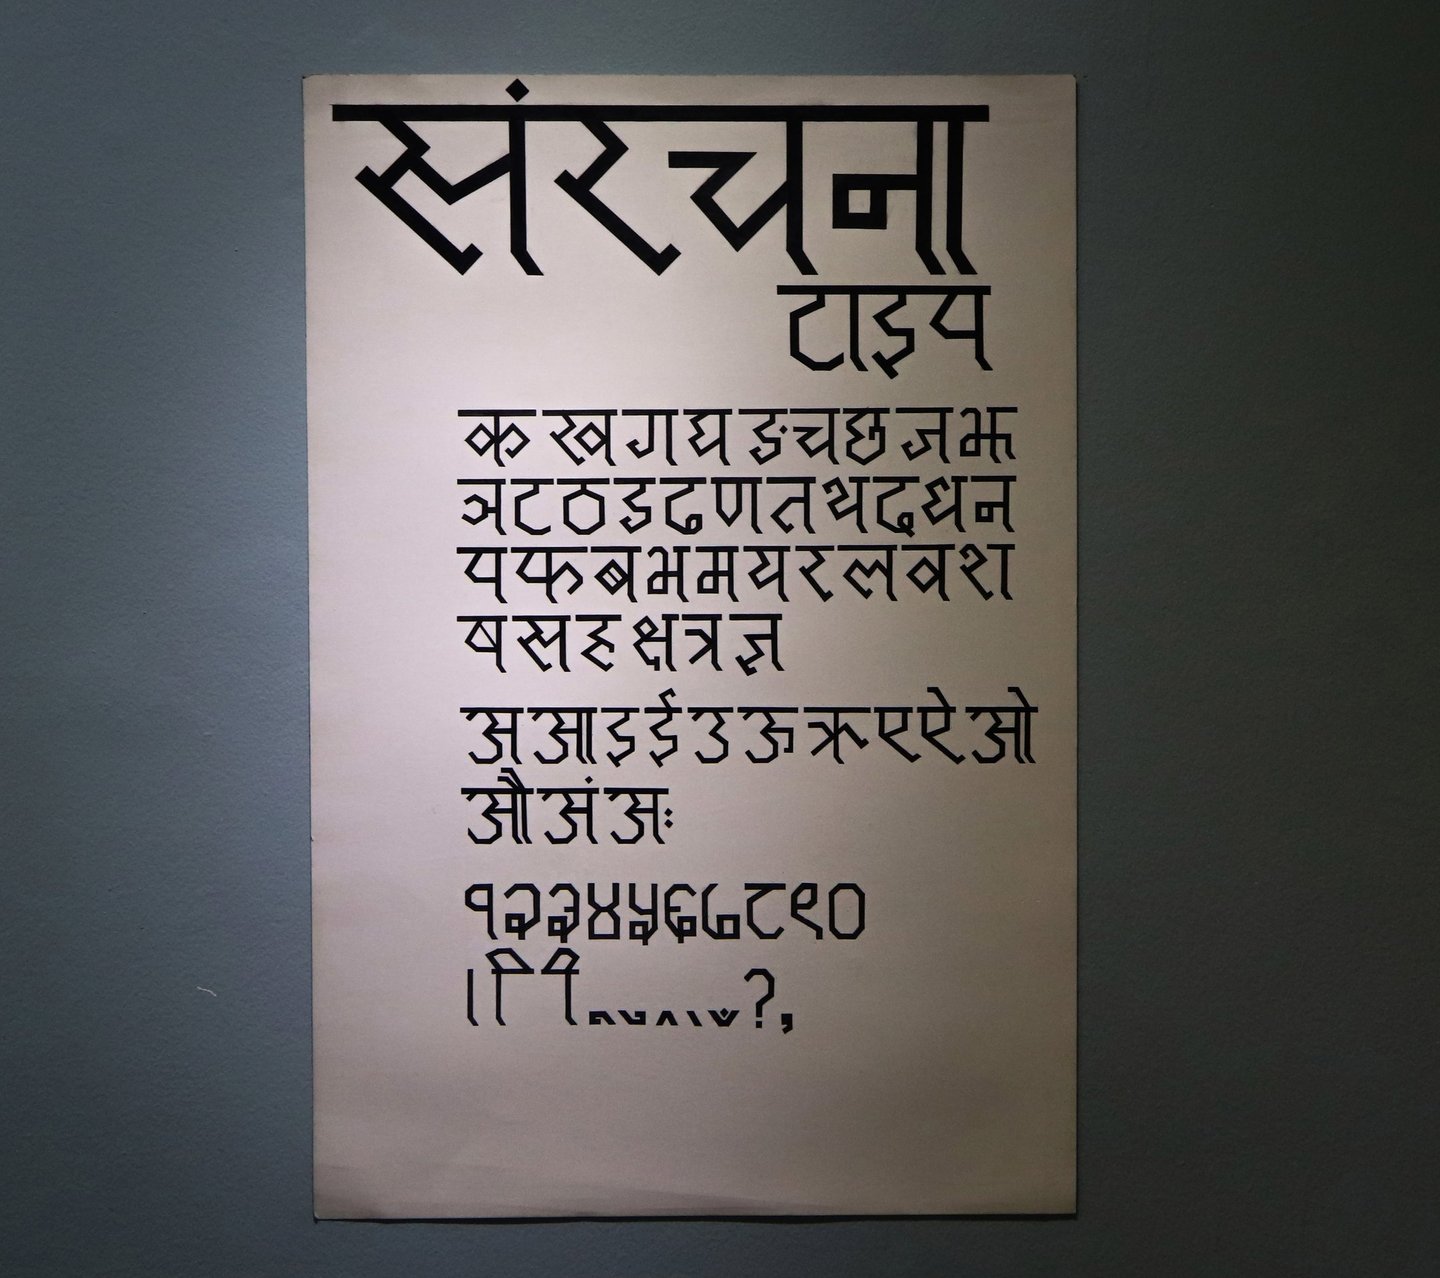 संरचना
टाइप
क ख ग घ ङ च छ ज झ
ञ ट ठ ड ढ ण त थ द ध न
प फ ब भ म य र ल व श
ष स ह क्ष त्र ज्ञ
अ आ इ ई उ ऊ ऋ ए ऐ ओ
औ अं अः
१२३४५६७८९०
ा ि ी ु ू ृ ् ? ,